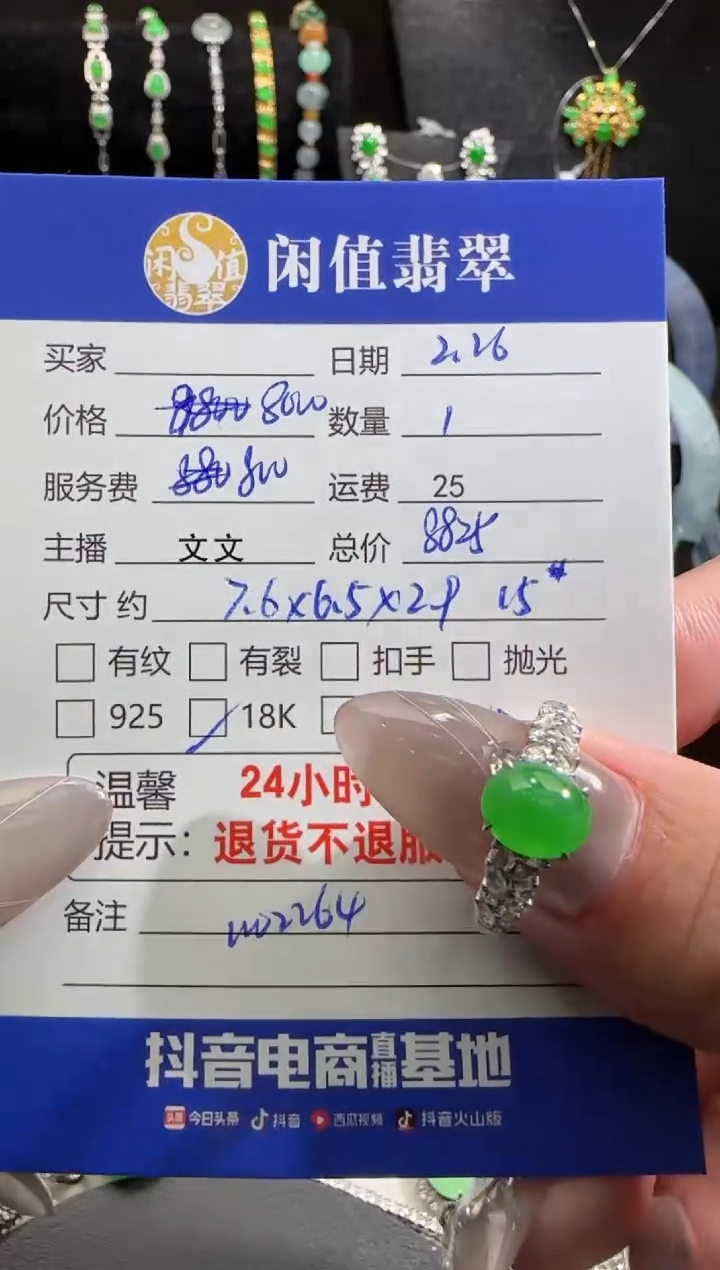 闲值翡翠
闲值翡翠
买家 日期 2.26
价格 8000 数量 1
服务费 800 运费 25
主播 文文 总价 8825
尺寸 约 7.6x6.5x2.9 15#
有纹 有裂 扣手 抛光
925 18K
温馨 24小时
提示: 退货不退服
备注 W02264
抖音电商直播基地
头条 今日头条 抖音 西瓜视频 抖音火山版